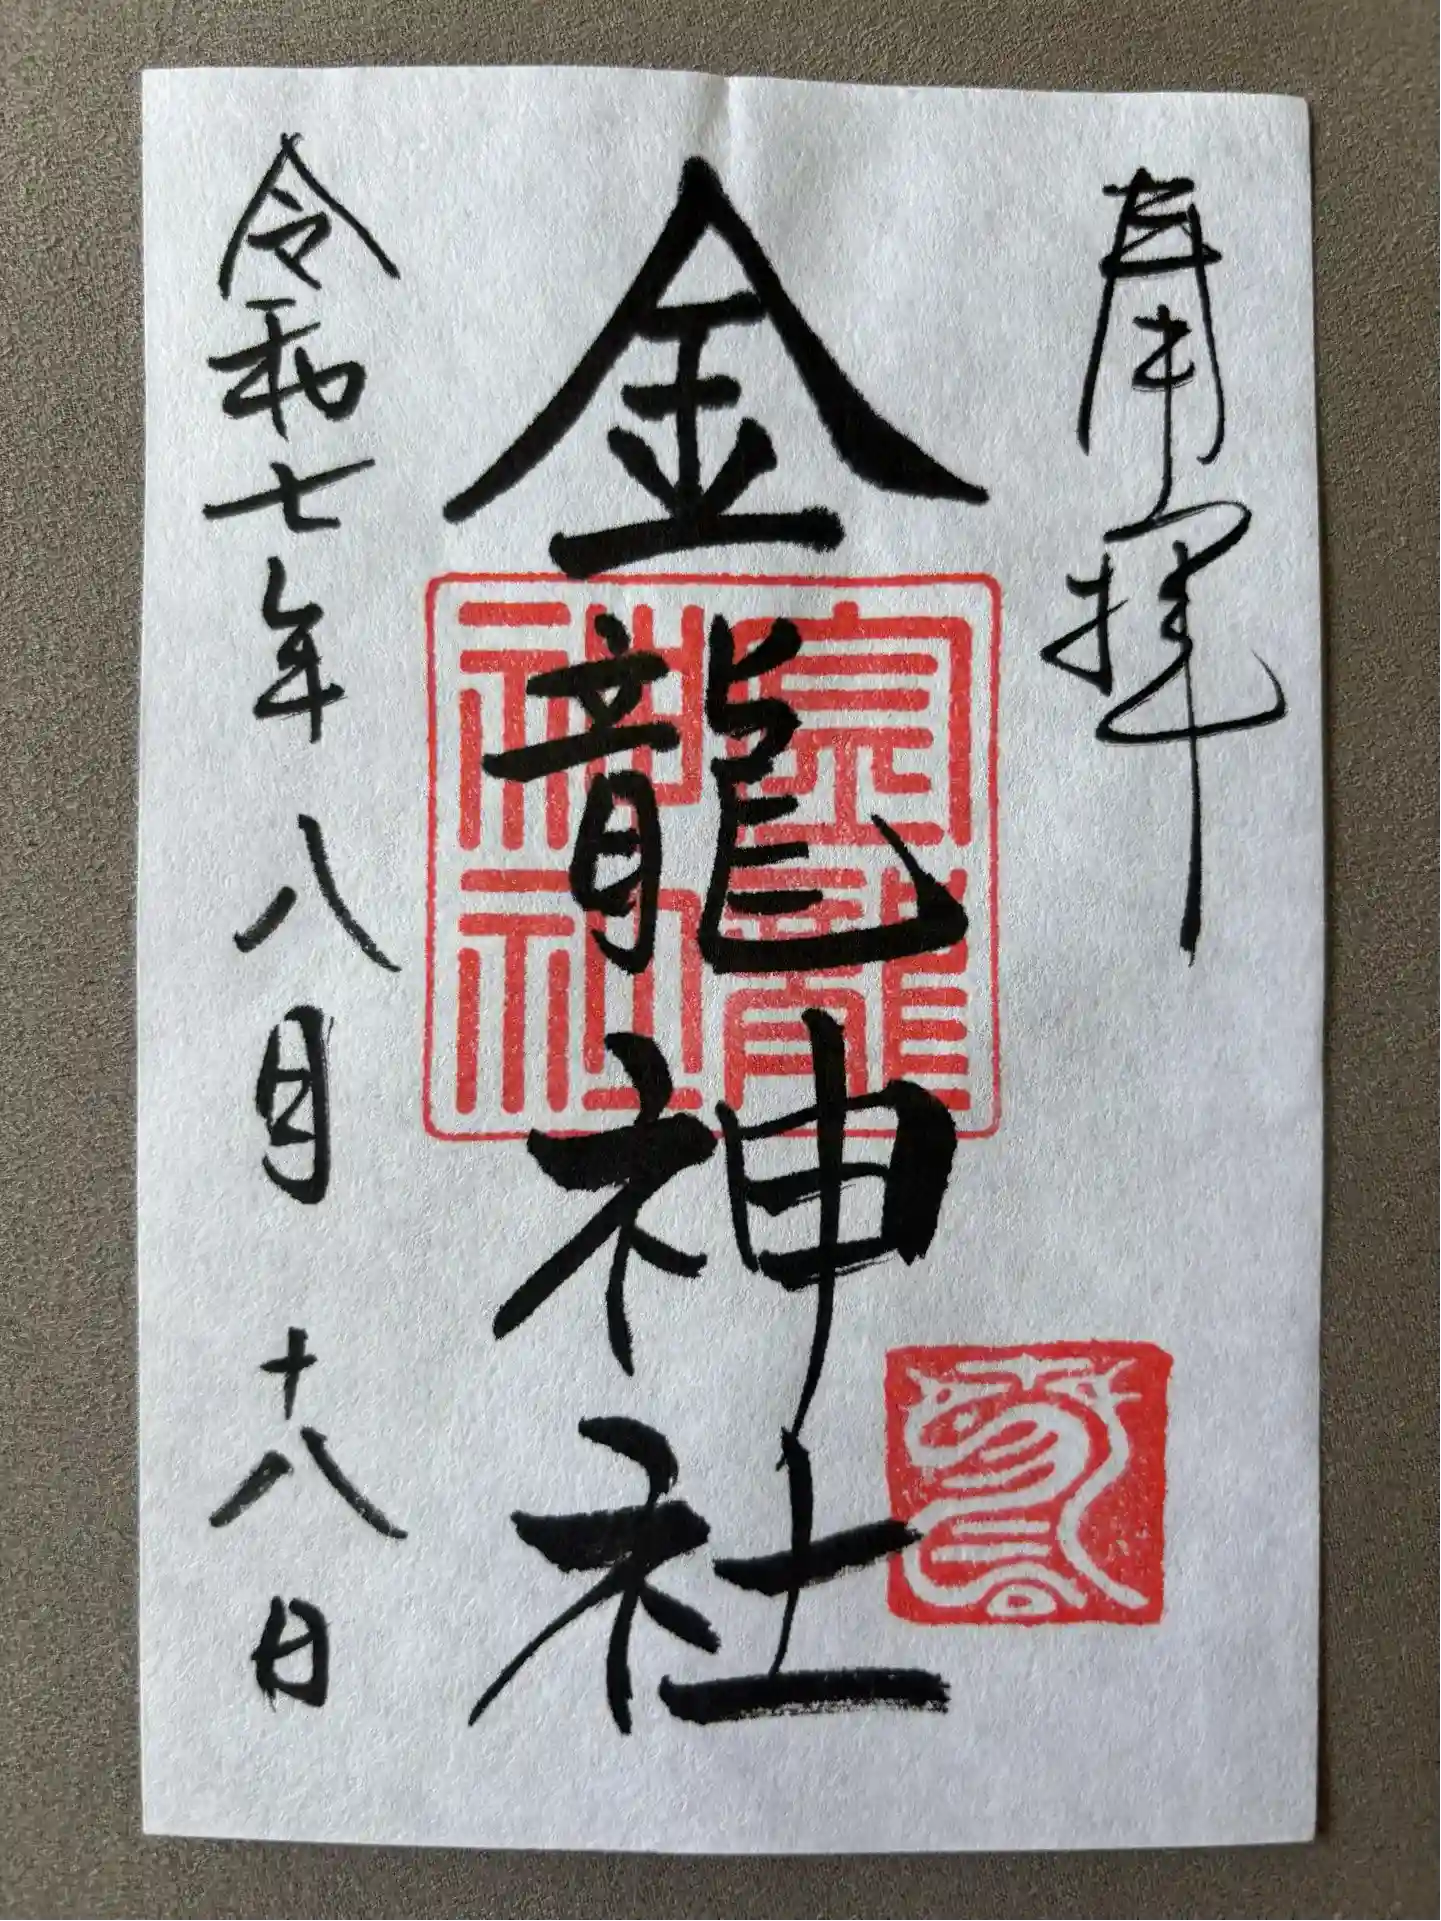 奉拝
金龍神社
金龍神社
令和七年八月十八日